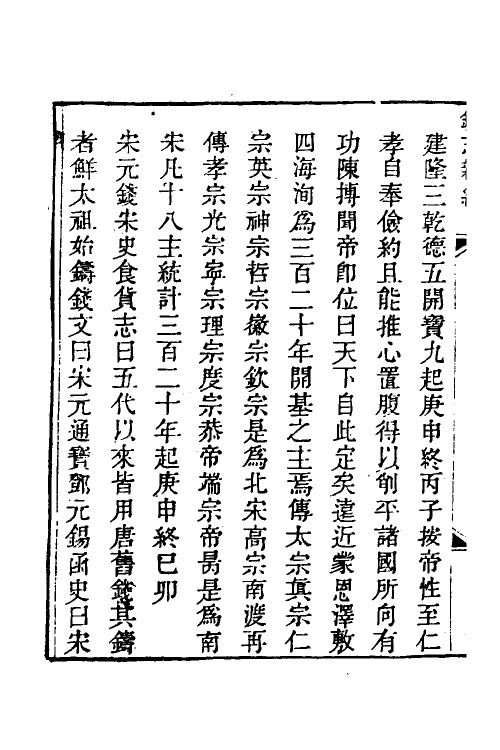 建隆三乾德五開寶九起庚申終丙子按帝性至仁
孝自奉儉約且能推心置腹得以削平諸國所向有
功陳摶聞帝卽位曰天下自此定矣遠近蒙恩澤敷
四海洵爲三百二十年開基之主焉傳太宗眞宗仁
宗英宗神宗哲宗徽宗欽宗是爲北宋高宗南渡再
傳孝宗光宗寧宗理宗度宗恭帝端宗帝昺是爲南
宋凡十八主統計三百二十年起庚申終巳卯
宋元錢宋史食貨志曰五代以來皆用唐舊錢其鑄
者鮮太祖始鑄錢文曰宋元通寶鄧元錫函史曰宋